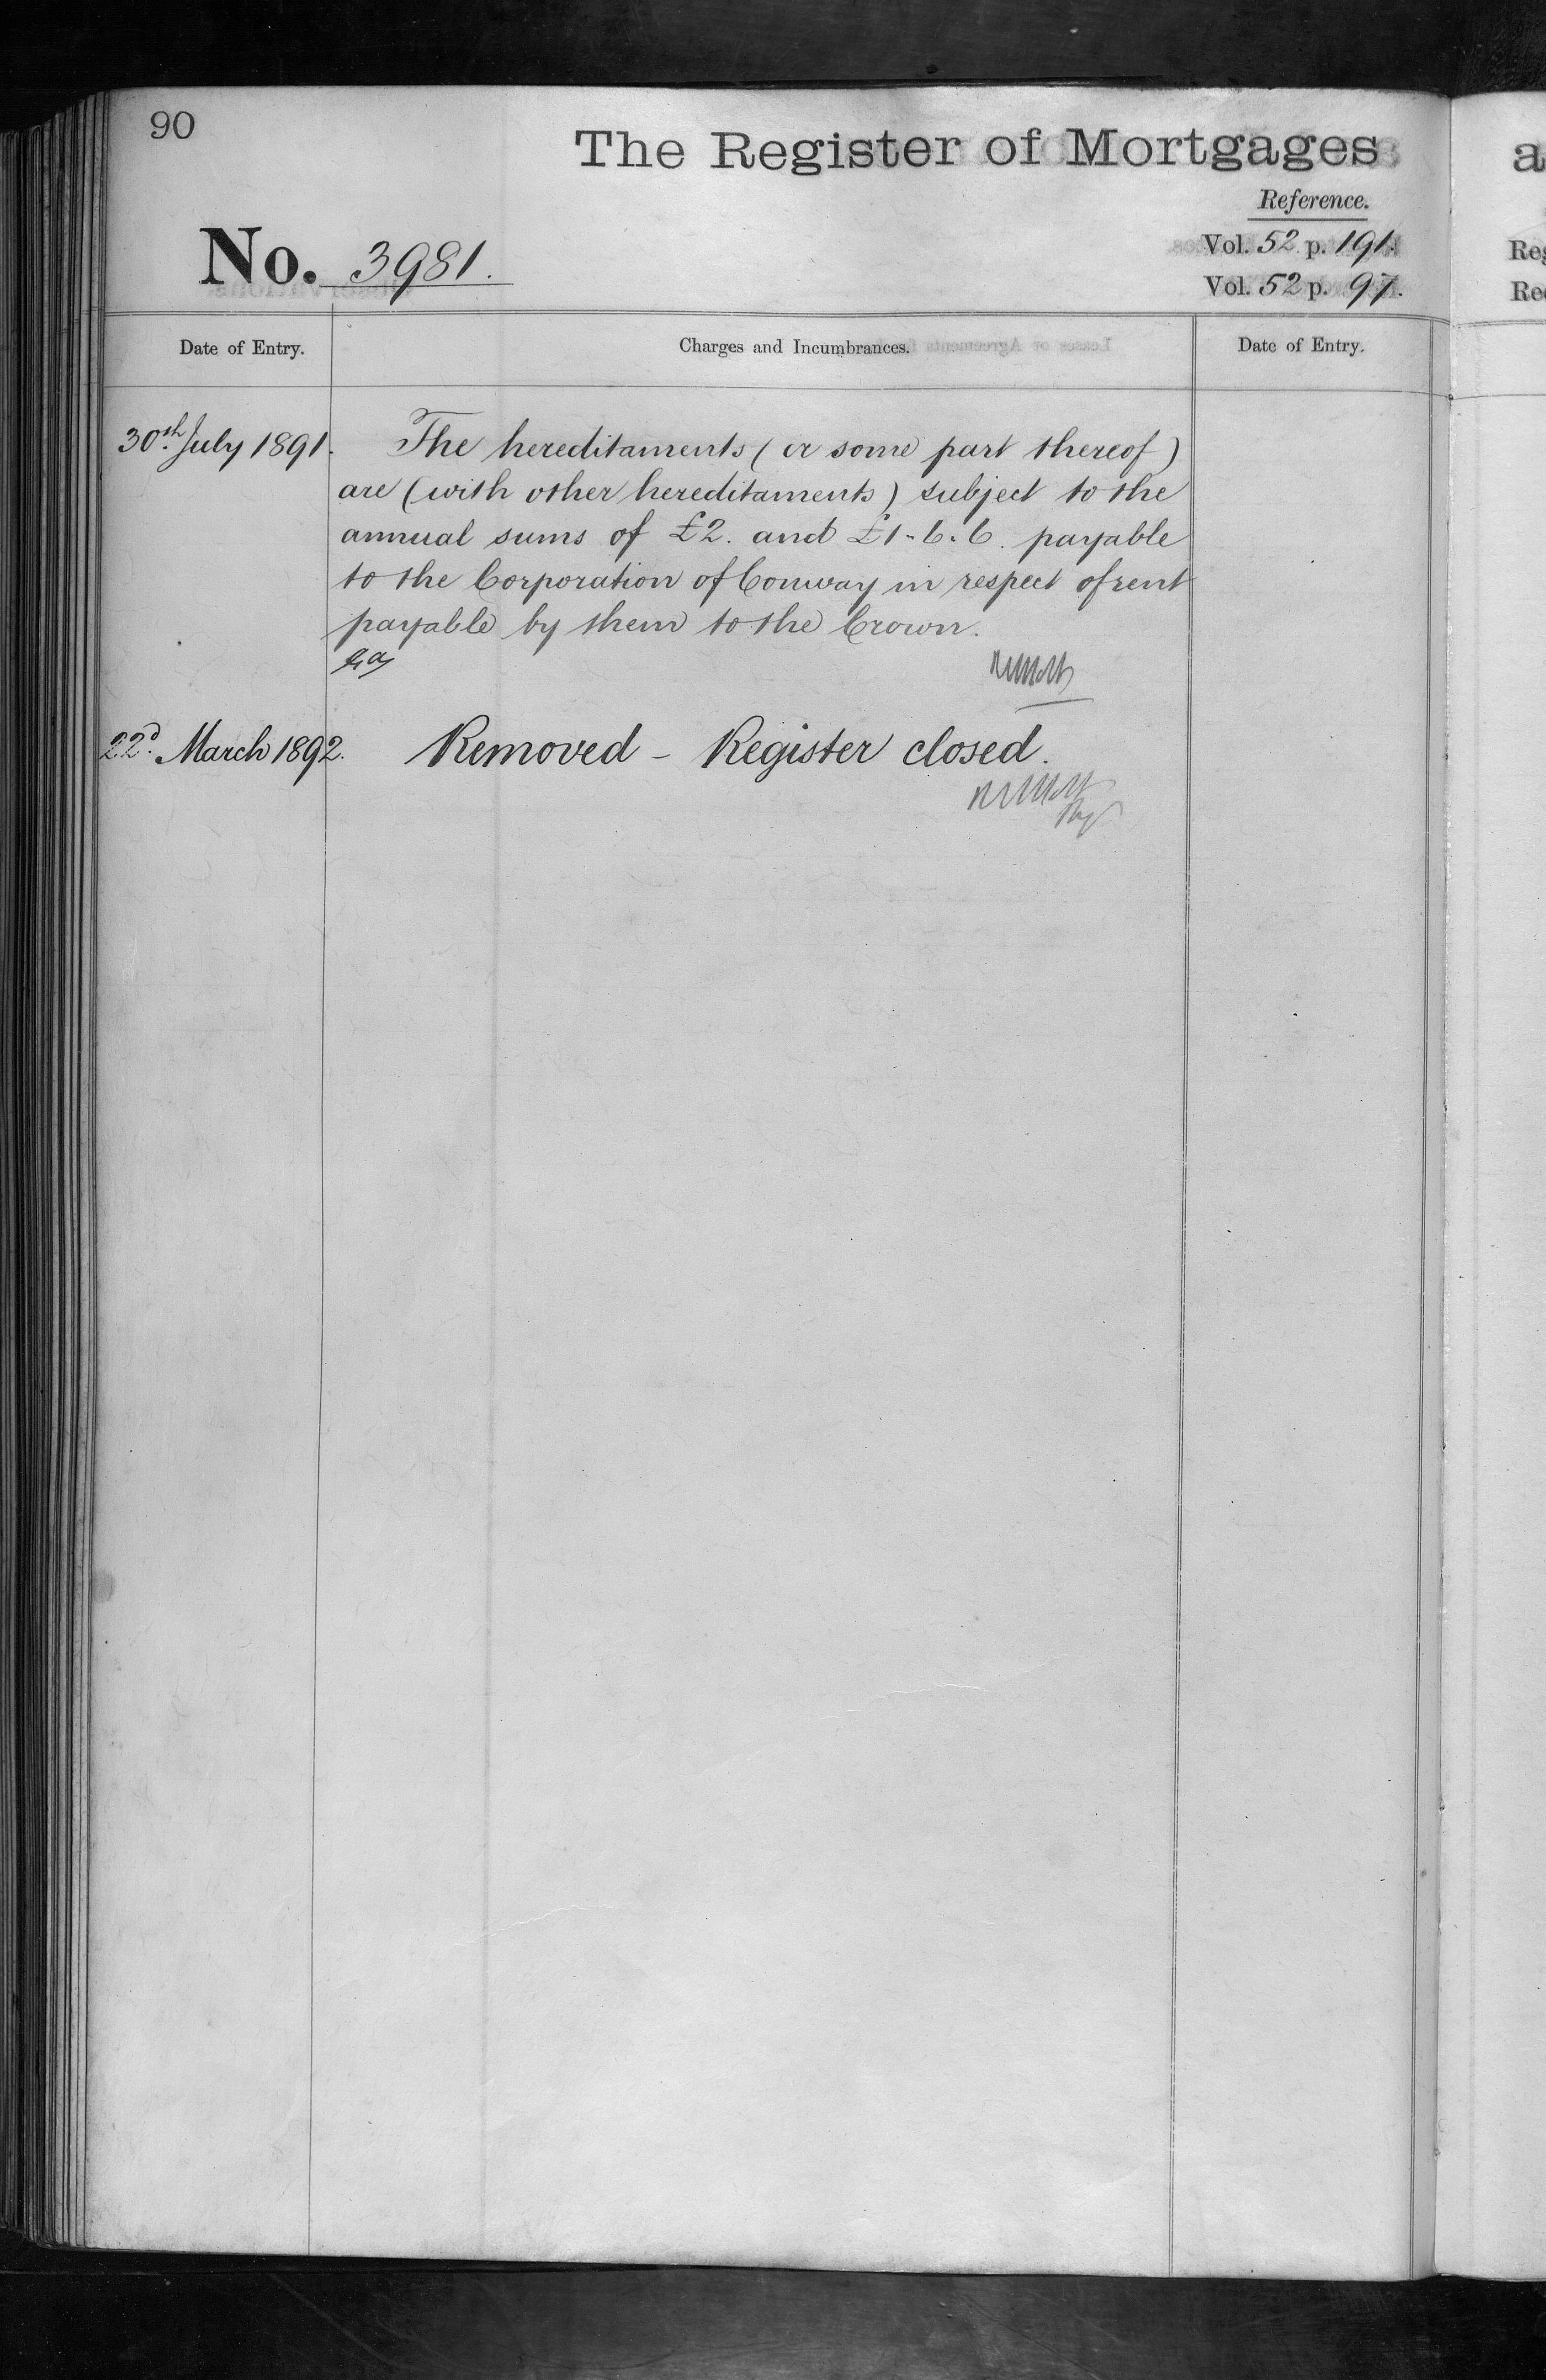 90
The Register of Mortgages
a
Reference.
No. 3981.
Vol. 52 p. 191.
Reg
Vol. 52 p. 97.
Rec
Date of Entry.
Charges and Incumbrances.
Date of Entry.
30th July 1891.
The hereditaments (or some part thereof)
are (with other hereditaments) subject to the
annual sums of £2. and £1-6-6. payable
to the Corporation of Conway in respect of rent
payable by them to the Crown.
22d. March 1892.
Removed - Register closed.